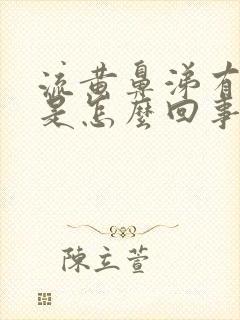 流黄鼻涕有
是怎麼回事
陳立萱